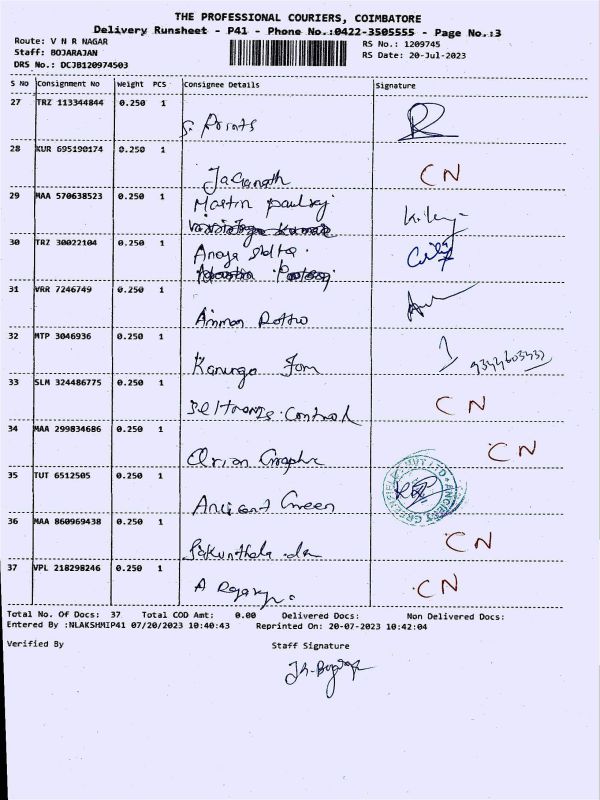 THE PROFESSIONAL COURIERS, COIMBATORE
Delivery Runsheet - P41 - Phone No.:0422-3505555 - Page No.:3
Route: V N R NAGAR
RS No.: 1209745
Staff: BOJARAJAN
RS Date: 20-Jul-2023
DRS No.: DCJB120974503
S No Consignment No Weight PCS Consignee Details Signature
27 TRZ 113344844 0.250 1
S. Prints
28 KUR 695190174 0.250 1
Jaganath CN
29 MAA 570638523 0.250 1
Martin paulraj
30 TRZ 30022104 0.250 1
31 VRR 7246749 0.250 1
Amman
32 MTP 3046936 0.250 1
33 SLM 324486775 0.250 1
Control CN
34 MAA 299834686 0.250 1
Orion Graphic CN
35 TUT 6512505 0.250 1
Ancient Green
36 MAA 860969438 0.250 1
Sakunthala CN
37 VPL 218298246 0.250 1
A CN
Total No. Of Docs: 37 Total COD Amt: 0.00 Delivered Docs: Non Delivered Docs:
Entered By :NLAKSHMIP41 07/20/2023 10:40:43 Reprinted On: 20-07-2023 10:42:04
Verified By Staff Signature